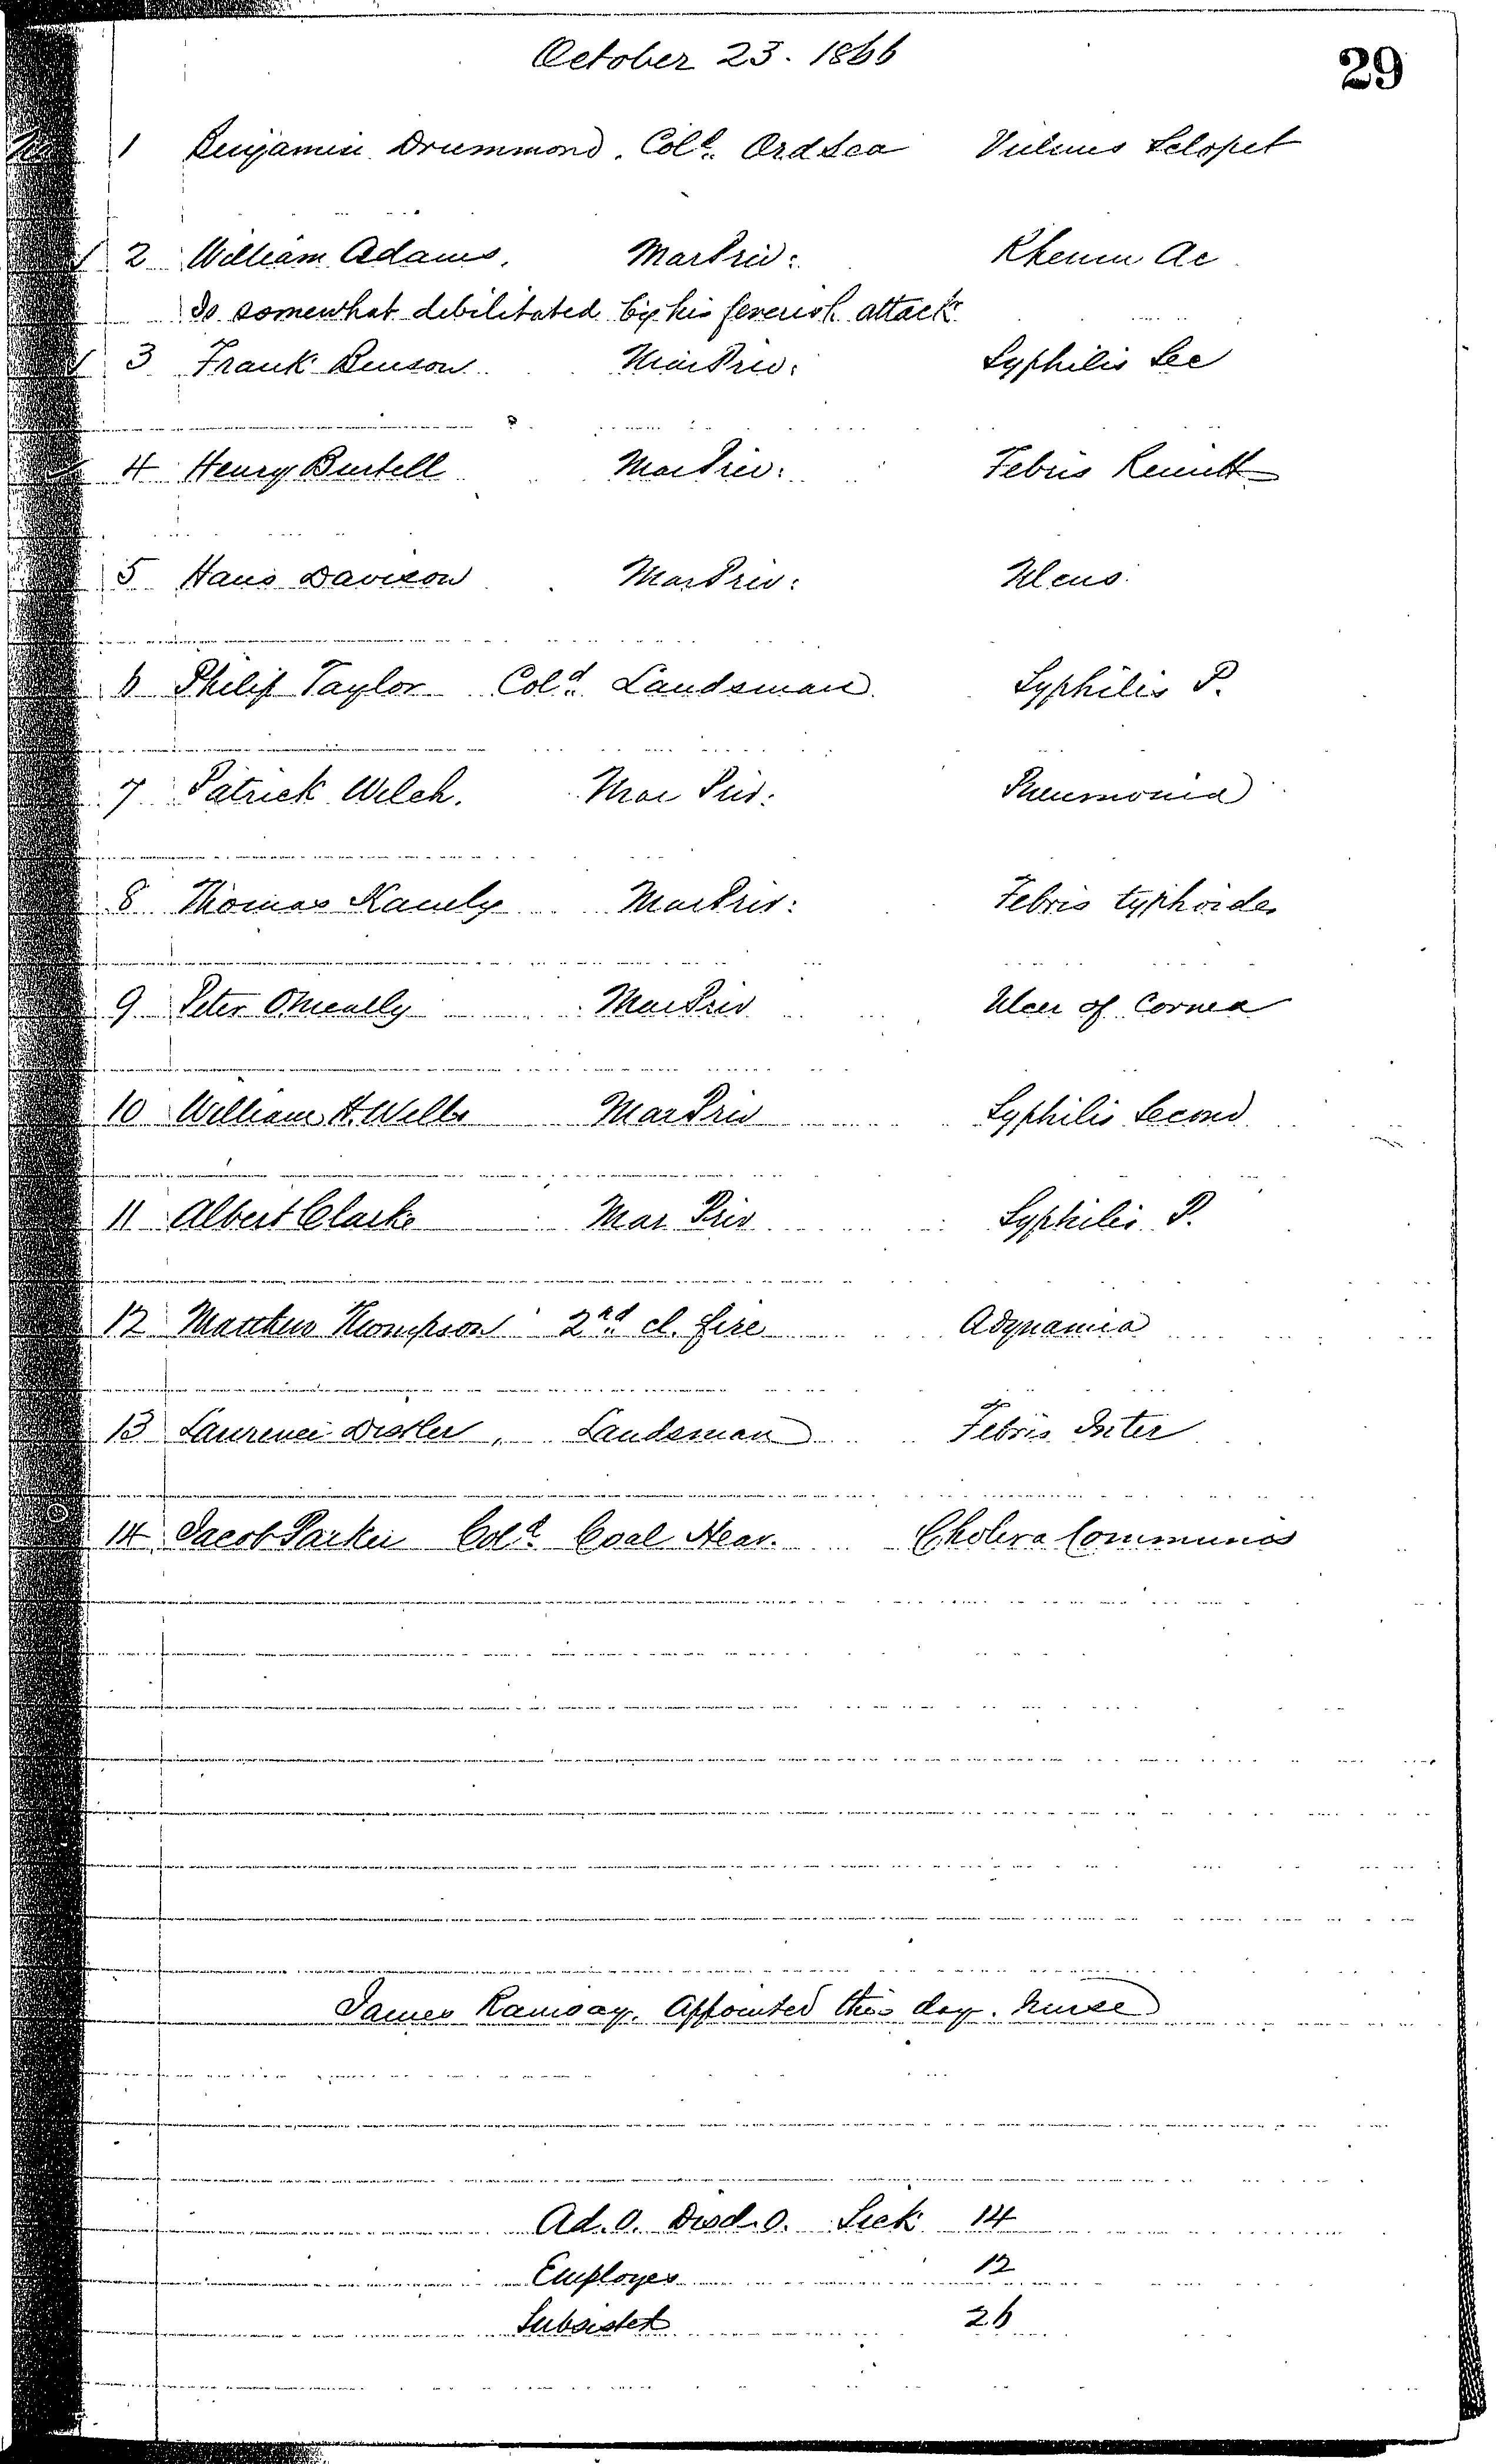 October 23. 1866
29
1 Benjamin Drummond. Col^d. Ord Sea Vulnus Sclopet
2 William Adams. Mar Priv: Rheum Ac
Is somewhat debilitated by his feverish attack
3 Frank Benson Mar Priv: Syphilis Sec
4 Henry Burtell Mar Priv: Febris Remitt
5 Hans Davison Mar Priv: Ulcus
6 Philip Taylor Col^d. Landsman Syphilis P.
7 Patrick Welch. Mar Priv: Pneumonia
8 Thomas Kamely Mar Priv: Febris typhoides
9 Peter OMeally Mar Priv Ulcer of Cornea
10 William H. Wells Mar Priv Syphilis Second
11 Albert Clarke Mar Priv Syphilis P.
12 Matthew Thompson 2^nd cl. fire Adynamia
13 Laurence Distler, Landsman Febris Inter
14 Jacob Parker Col^d. Coal Heav. Cholera Communis
James Ramsay. Appointed this day. Nurse
Ad. 0. Disd. 0. Sick 14
Employes 12
Subsisted 26